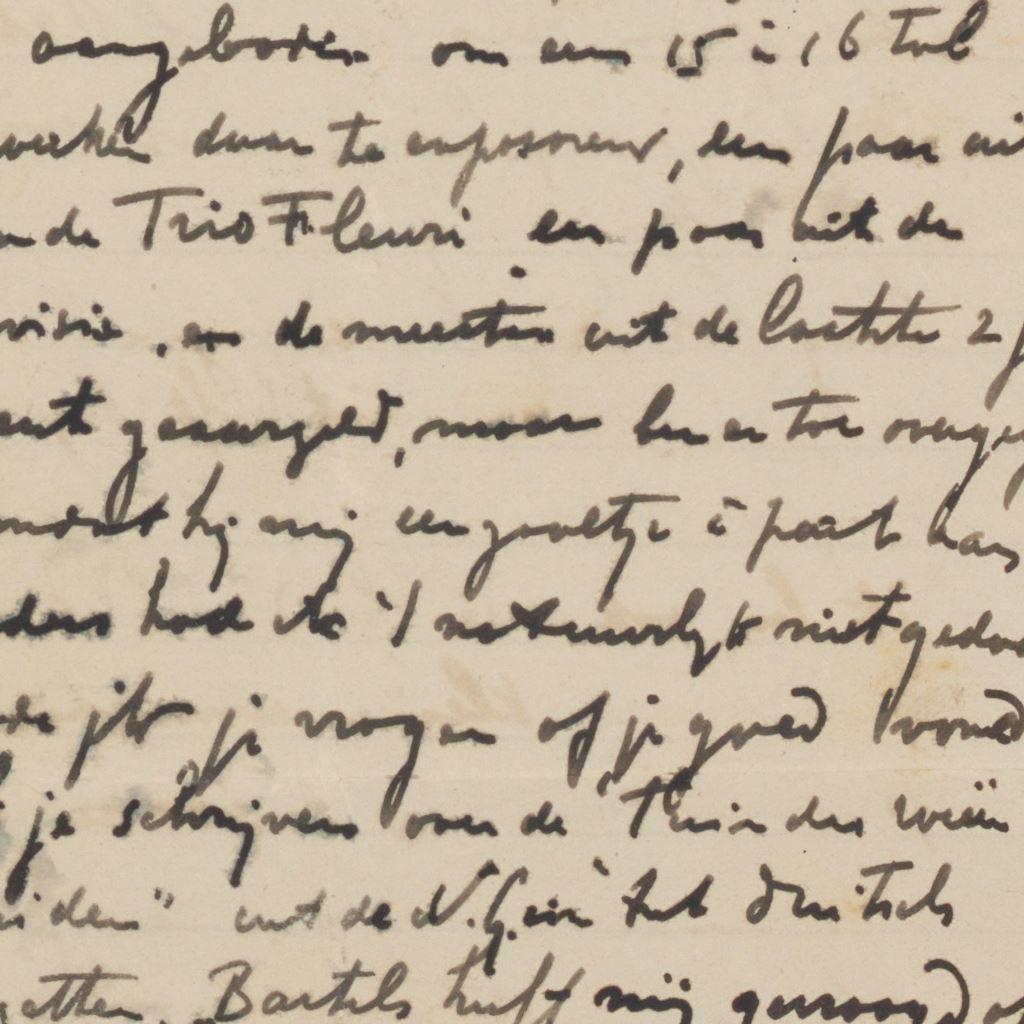 aangeboden om een 15 à 16 tal
werken daar te exposeren, een paar uit
de Trio Fleuri een paar uit de
visie, en de meesten uit de laatste 2 j
geaarzeld, maar ben er toe overge
omdat hij mij een zaaltje à part
ders had ik 't natuurlijk niet gedaa
je vragen of je goed vond
je schrijven over de "Tuin der wiën
iden" uit de N. G. in het duitsch
zetten. Bartels heeft mij gevraagd of